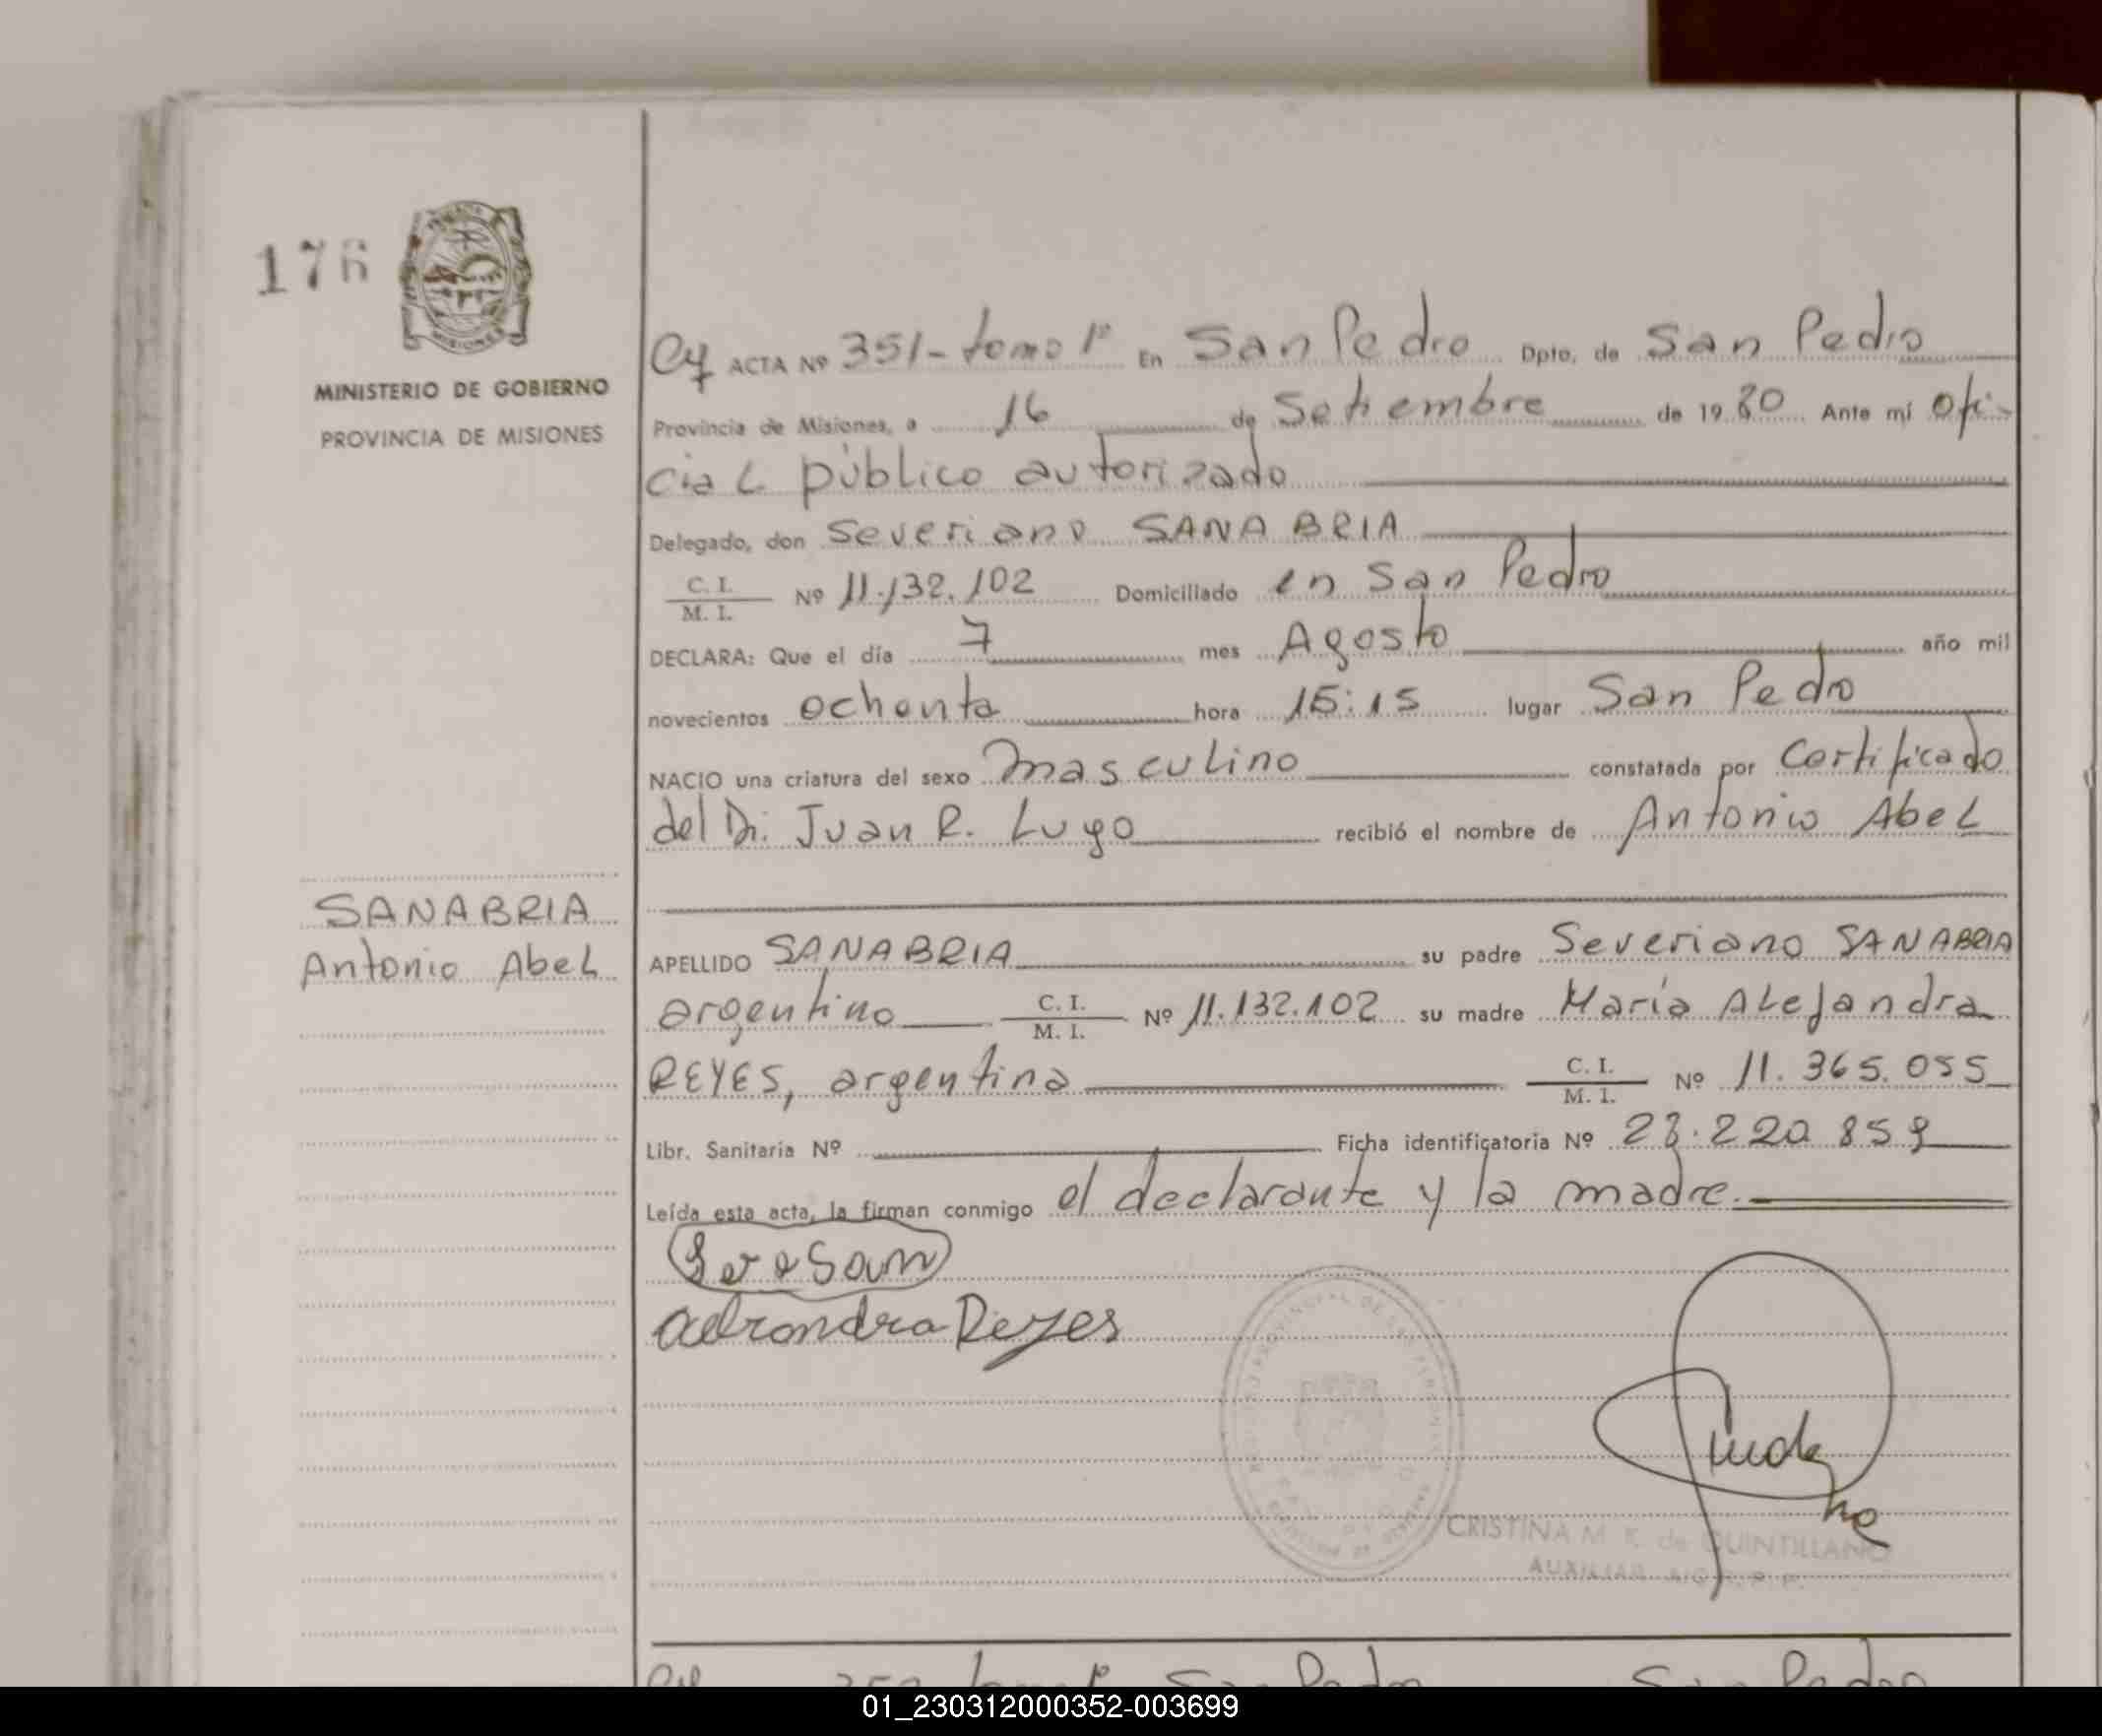 176
MINISTERIO DE GOBIERNO
PROVINCIA DE MISIONES
ACTA Nº 351-tomo 1º En San Pedro Dpto. de San Pedro
Provincia de Misiones, a 16 de Setiembre de 1980 Ante mí Ofi-
cial público autorizado
Delegado, don Severiano SANABRIA
C. I.
M. I. Nº 11.132.102 Domiciliado en San Pedro
DECLARA: Que el día 7 mes Agosto año mil
novecientos ochenta hora 15:15 lugar San Pedro
NACIO una criatura del sexo masculino constatada por Certificado
del Dr. Juan R. Lugo recibió el nombre de Antonio Abel
SANABRIA
Antonio Abel
APELLIDO SANABRIA su padre Severiano SANABRIA
argentino C. I.
M. I. Nº 11.132.102 su madre María Alejandra
REYES, argentina C. I.
M. I. Nº 11.365.055
Libr. Sanitaria Nº Ficha identificatoria Nº 28.220 859
Leída esta acta, la firman conmigo el declarante y la madre.
Reyes
CRISTINA M. K. de QUINTILLANO
AUXILIAR
352 tomo 1º San Pedro San Pedro
01_230312000352-003699